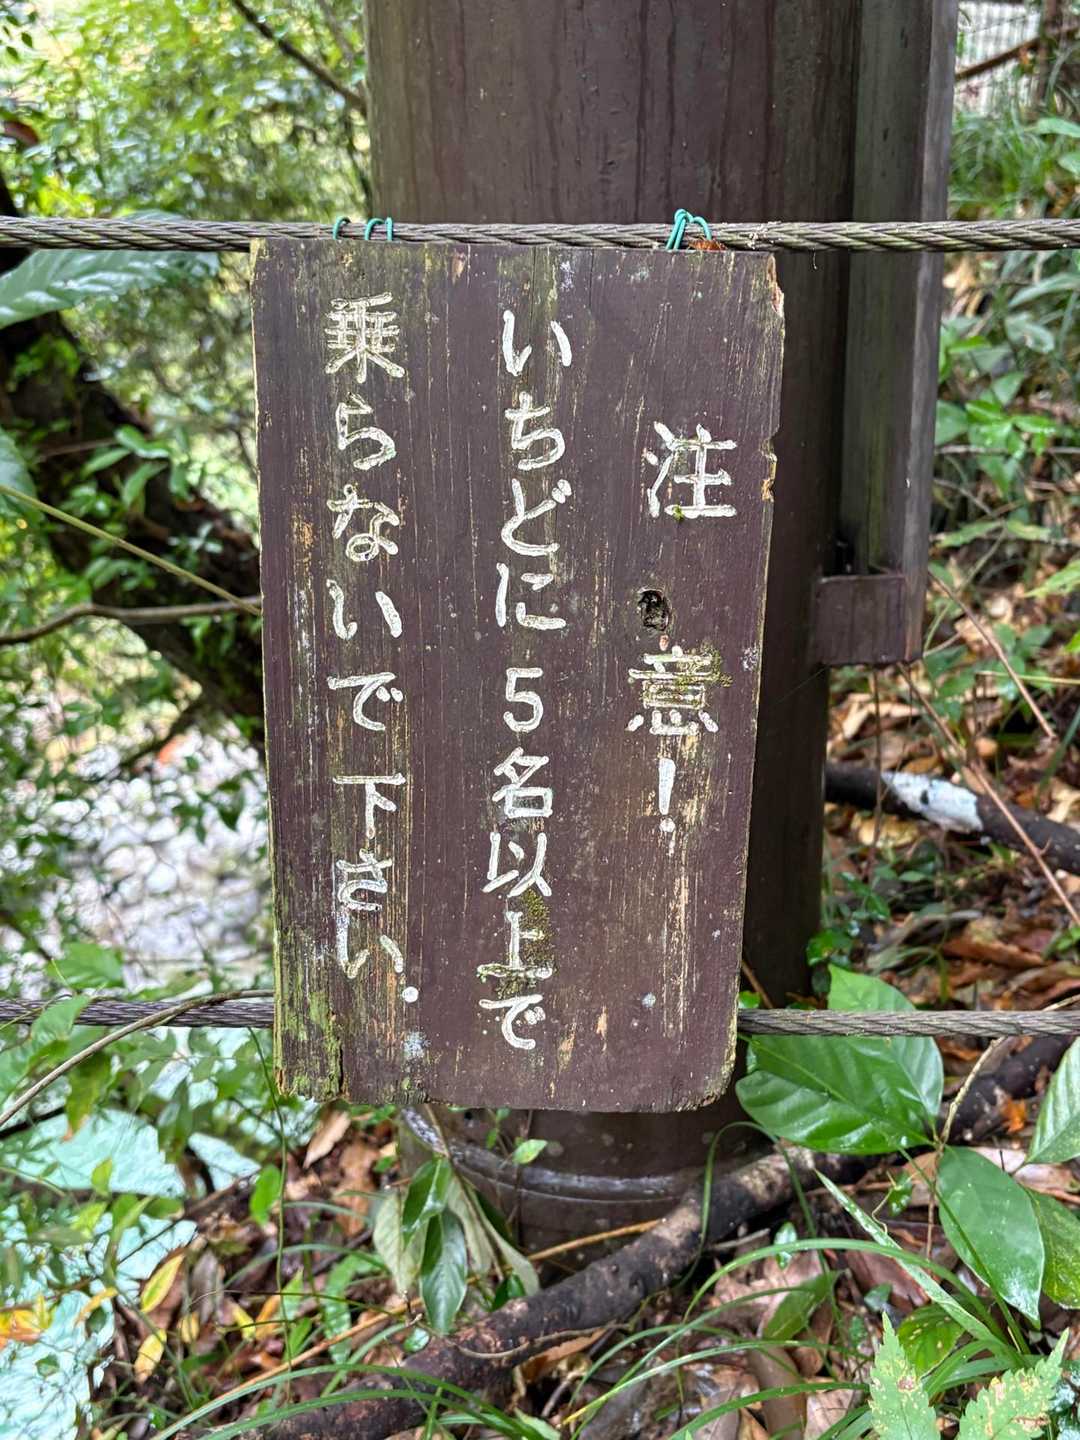 注意!
いちどに5名以上で
乗らないで下さい。